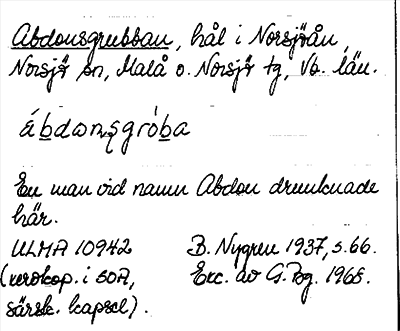 Abdonsgrubban, hål i Norsjöån,
Norsjö sn, Malå o. Norsjö tg, Vb. län.
ábdon̥sgróba
En man vid namn Abdon drunknade
här.
ULMA 10942 B. Nygren 1937, s. 66.
(xerokop. i SOA, Exc. av G. Pbg. 1968.
särsk. kapsel).